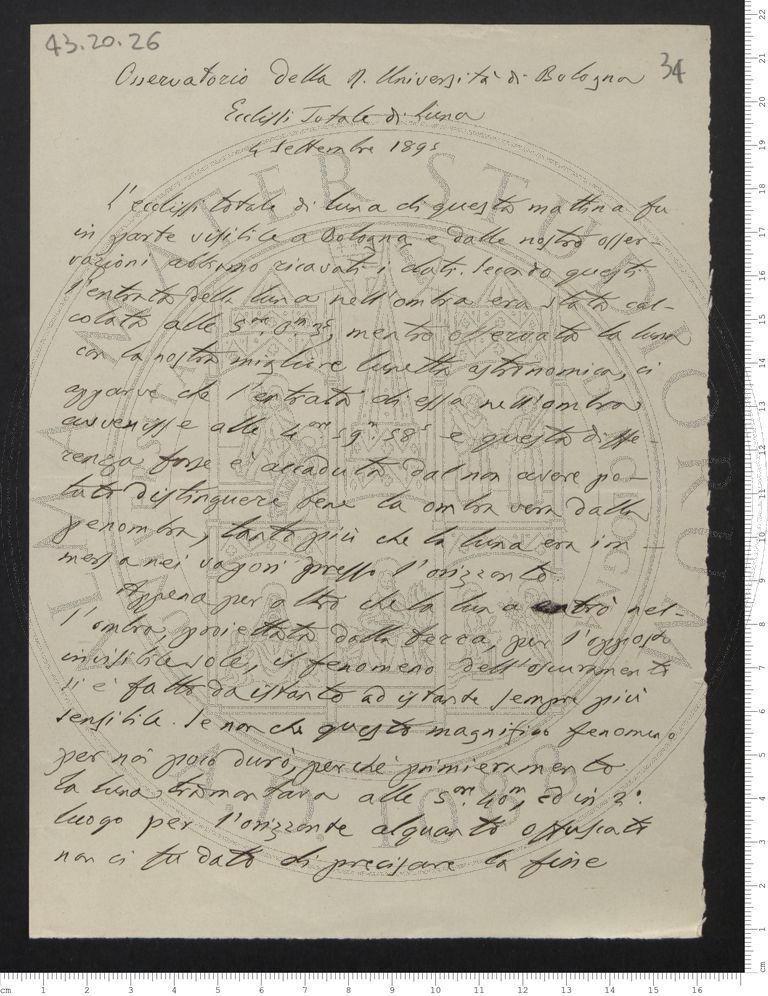 43.20.26
34
Osservatorio della R. Università di Bologna
Ecclissi Totale di Luna
4 Settembre 1895
L'ecclissi totale di luna di questa mattina fu
in parte visibile a Bologna e dalle nostre osser-
vazioni abbiamo ricavati i dati. Secondo questi
l'entrata della luna nell'ombra era stata cal-
colata alle 5ore 0m 3s, mentre osservata la luna
con la nostra migliore lunetta astronomica, ci
apparve che l'entrata di essa nell'ombra
avvenisse alle 4ore 59m 58s e questa diffe-
renza forse è accaduta dal non avere po-
tuto distinguere bene la ombra vera dalla
penombra, tanto più che la luna era im-
mersa nei vapori presso l'orizzonte.
Appena per altro che la luna entrò nel-
l'ombra, proiettata dalla terra, per l'opposto
invisibile sole, il fenomeno dell'oscuramento
si è fatto da istante ad istante sempre più
sensibile. Se non che questo magnifico fenomeno
per noi poco durò, perché primieramente
la luna tramontava alle 5ore 40m, ed in 2°
luogo per l'orizzonte alquanto offuscato
non ci fu dato di precisare la fine
ALMA MATER STUDIORUM
A.D. 1088